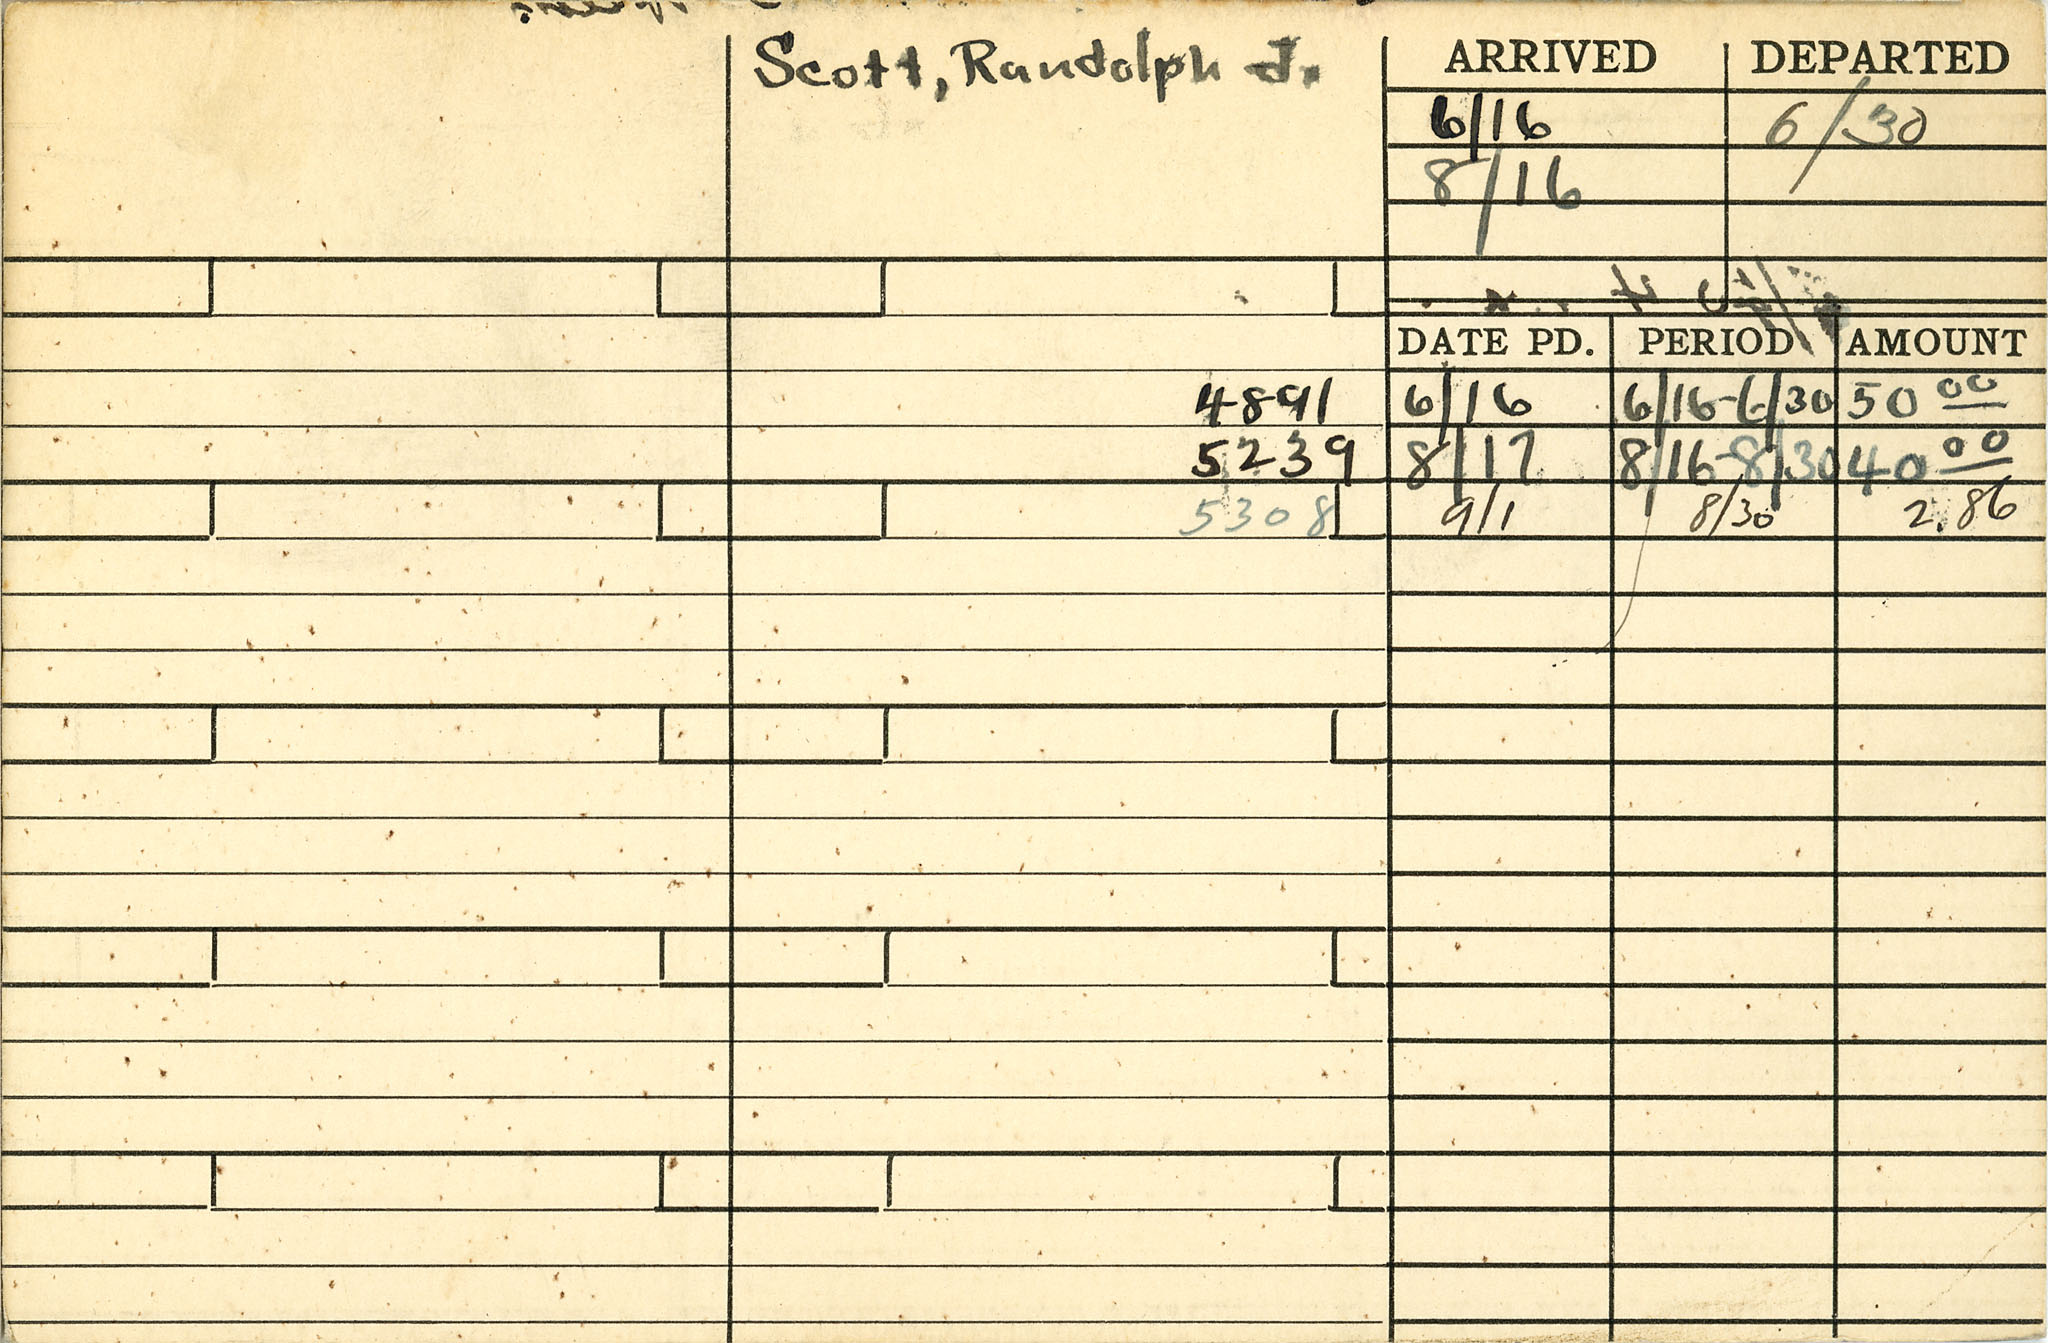 Scott, Randolph J.
ARRIVED DEPARTED
6/16 6/30
8/16
DATE PD. PERIOD AMOUNT
4891 6/16 6/16-6/30 50 00
5239 8/17 8/16-8/30 40 00
5308 9/1 8/30 2.86